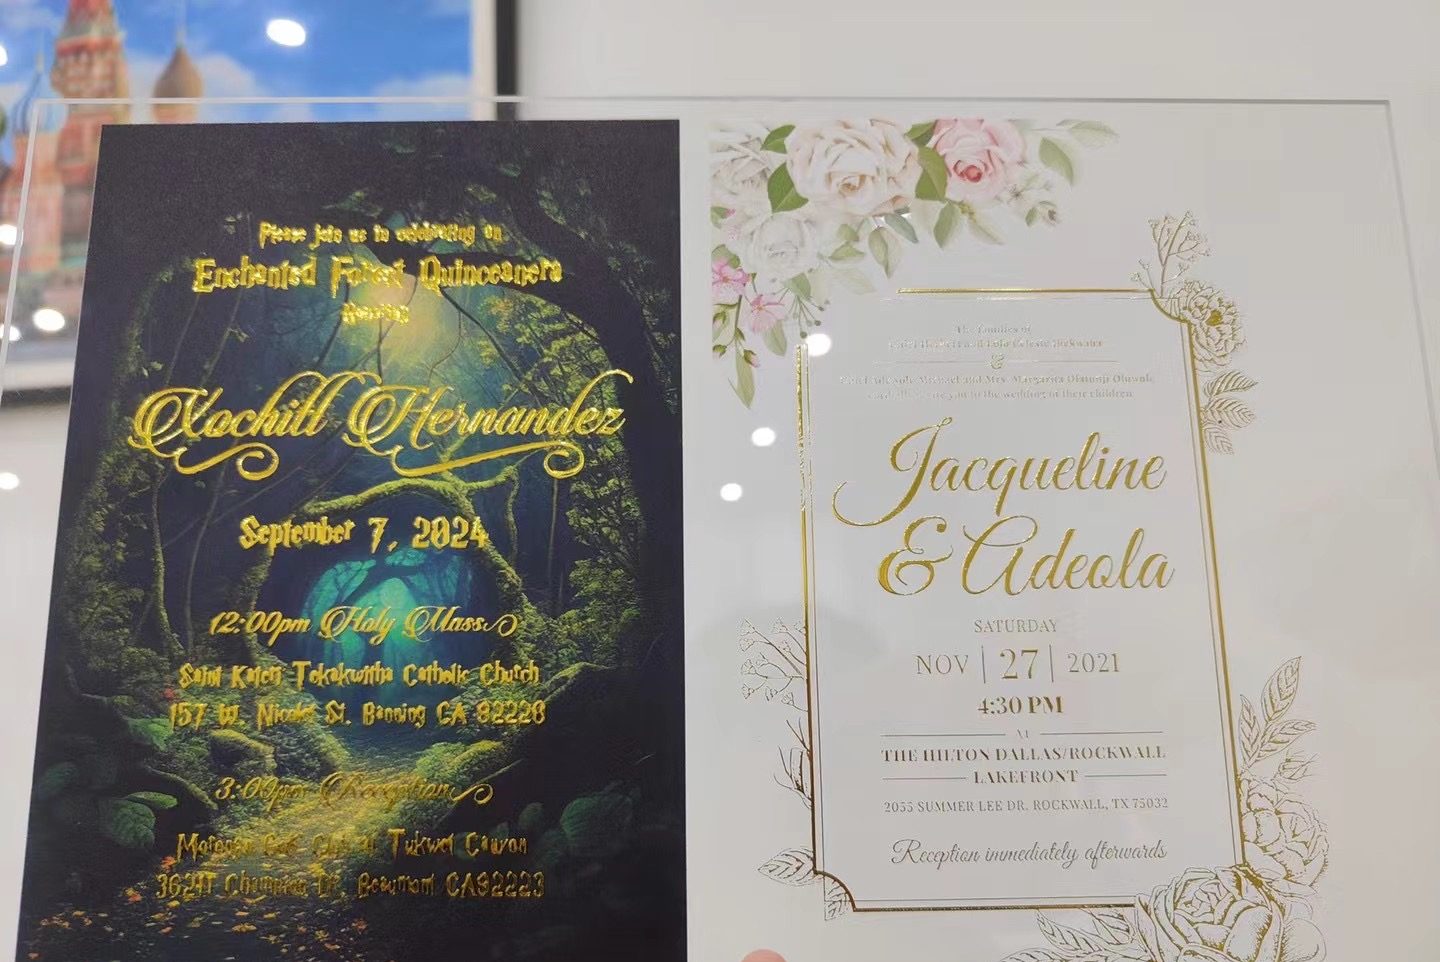 Please join us to celebrating an
Enchanted Forest Quinceanera
Xochitl Hernandez
September 7, 2024
12:00pm Holy Mass
Saint Kateri Tekakwitha Catholic Church
157 W. Nicolet St. Banning CA 92220
3:00pm Reception
Golf Club at Tukwet Canyon
36211 Champions Dr, Beaumont CA92223
The families of
&
Michael and Mrs. Margarita Olatunji Oluwole
to the wedding of their children
Jacqueline
& Adeola
SATURDAY
NOV | 27 | 2021
4:30 PM
AT
THE HILTON DALLAS/ROCKWALL
LAKEFRONT
2055 SUMMER LEE DR. ROCKWALL, TX 75032
Reception immediately afterwards